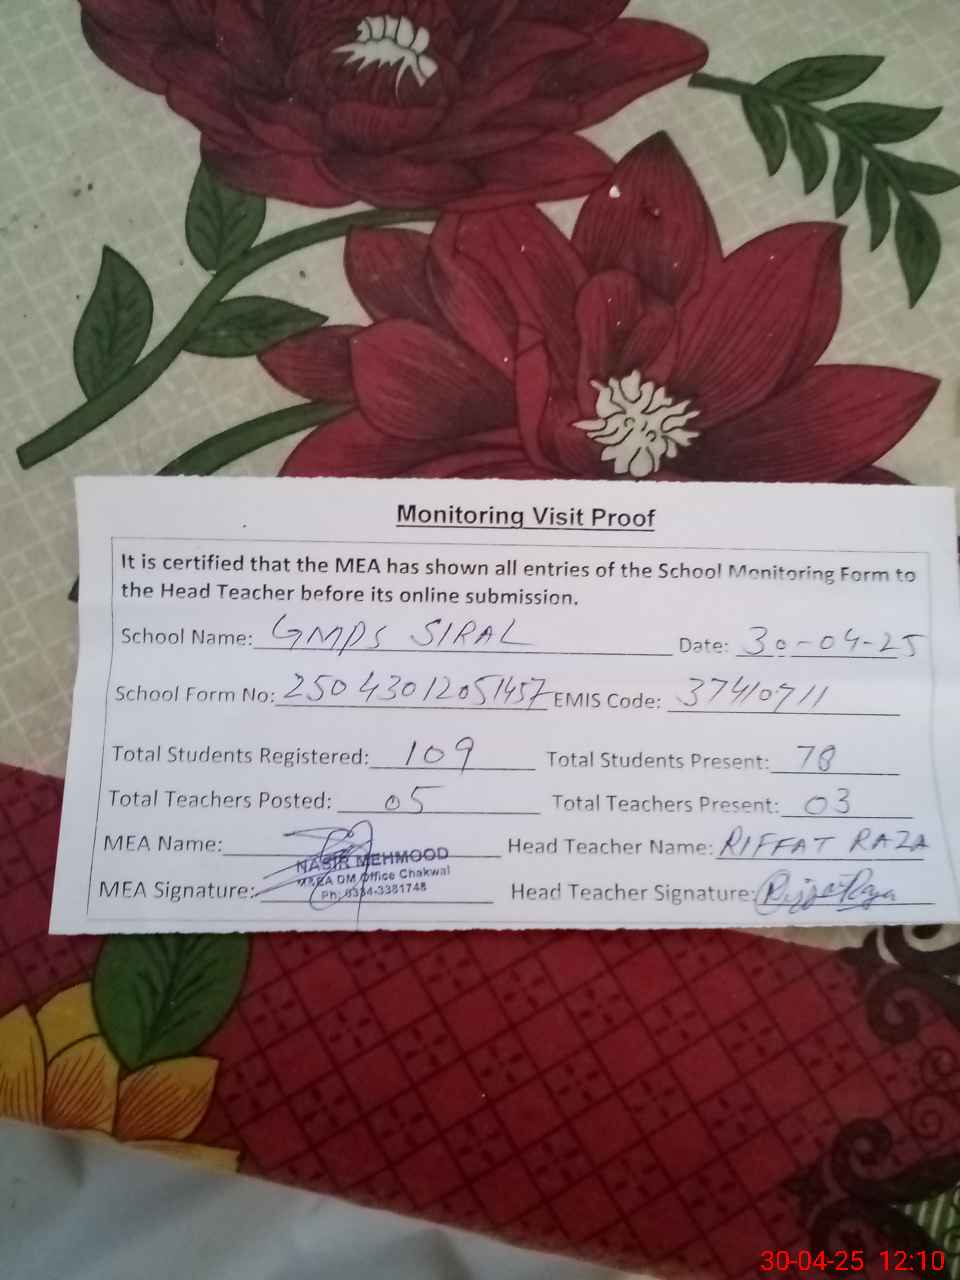 Monitoring Visit Proof
It is certified that the MEA has shown all entries of the School Monitoring Form to
the Head Teacher before its online submission.
School Name: GMPS SIRAL Date: 30-04-25
School Form No: 25043012051457 EMIS Code: 37410711
Total Students Registered: 109 Total Students Present: 78
Total Teachers Posted: 05 Total Teachers Present: 03
MEA Name: Head Teacher Name: RIFFAT RAZA
NASIR MEHMOOD
MEA DM Office Chakwal
Ph: 0334-3381748
MEA Signature: Head Teacher Signature: Riffat Raza
30-04-25 12:10